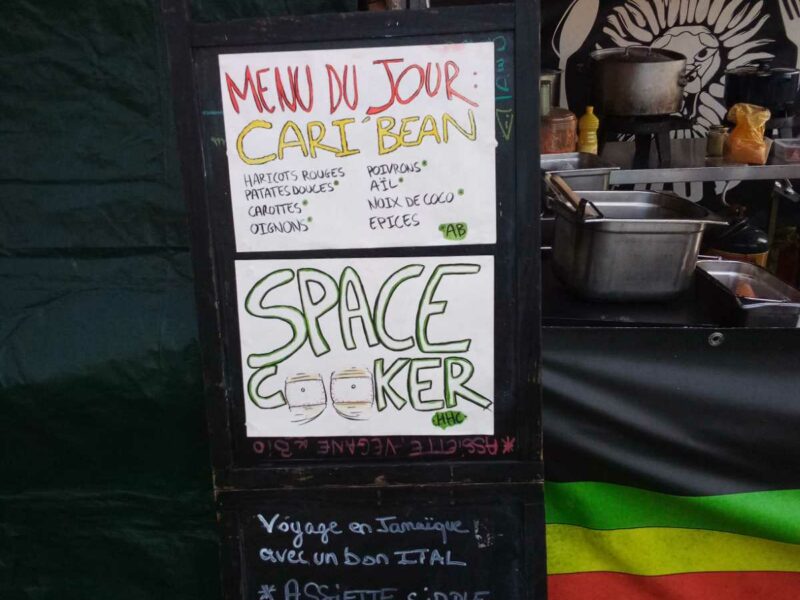 MENU DU JOUR:
CARI'BEAN
HARICOTS ROUGES
PATATES DOUCES*
CAROTTES*
OIGNONS*
POIVRONS*
AÏL*
NOIX DE COCO*
EPICES
AB
SPACE
COOKER
HHC
*ASSIETTE VEGANE & BIO
Voyage en Jamaïque
avec un bon ITAL
* ASSIETTE SIMPLE